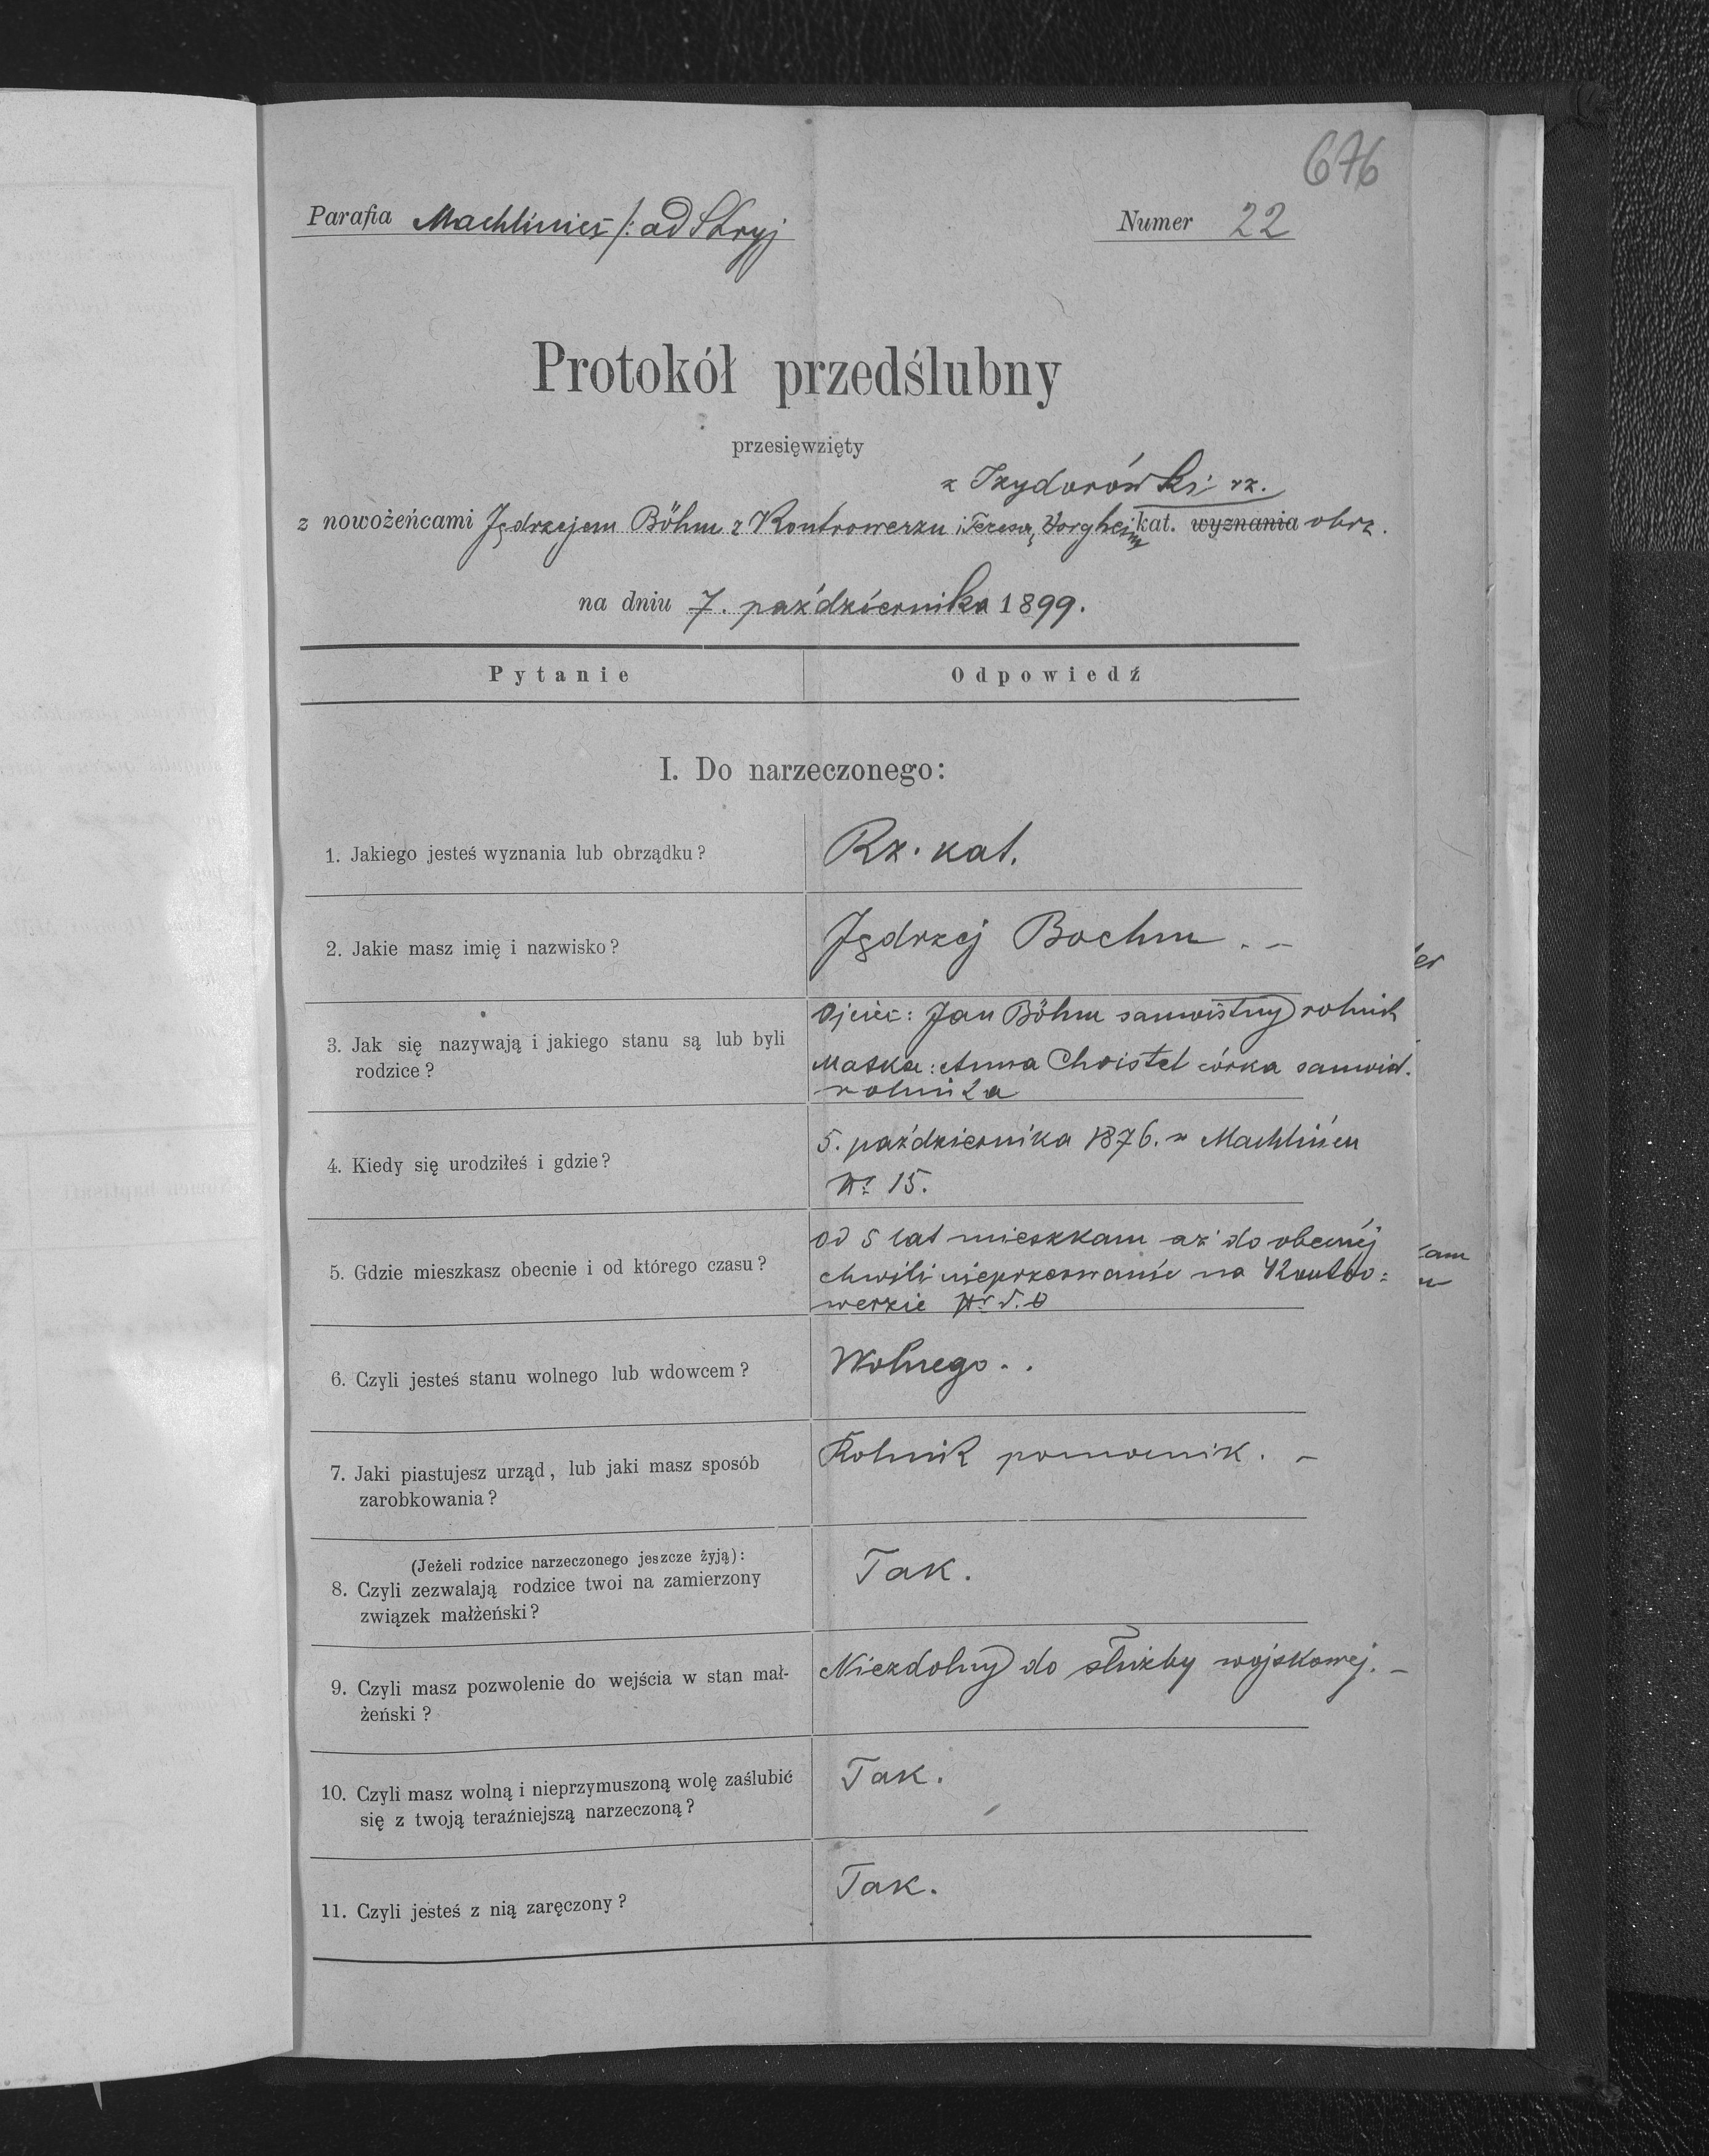 676
Parafia Machliniec /: ad Stryj
Numer 22
Protokół przedślubny
przesięwzięty
z Izydorówki rz.
z nowożeńcami Jędrzejem Böhm z Kontrowerzu i Teresą Worgheim kat. wyznania obrz.
na dniu 7. października 1899.
Pytanie
Odpowiedź
I. Do narzeczonego:
1. Jakiego jesteś wyznania lub obrządku?
Rz. kat.
2. Jakie masz imię i nazwisko?
Jędrzej Boehm. –
3. Jak się nazywają i jakiego stanu są lub byli
rodzice?
Ojciec: Jan Böhm samoistny rolnik
Matka: Anna Christel córka samoist.
rolnika
4. Kiedy się urodziłeś i gdzie?
5. października 1876. w Machlińcu
Nr 15.
5. Gdzie mieszkasz obecnie i od którego czasu?
od 5 lat mieszkam aż do obecnéj
chwili nieprzerwanie na Kontro=
werzie Nr d.
6. Czyli jesteś stanu wolnego lub wdowcem?
Wolnego..
7. Jaki piastujesz urząd, lub jaki masz sposób
zarobkowania?
Rolnik pomocnik. –
(Jeżeli rodzice narzeczonego jeszcze żyją):
8. Czyli zezwalają rodzice twoi na zamierzony
związek małżeński?
Tak.
9. Czyli masz pozwolenie do wejścia w stan mał-
żeński?
Niezdolny do służby wojskowej. –
10. Czyli masz wolną i nieprzymuszoną wolę zaślubić
się z twoją teraźniejszą narzeczoną?
Tak.
11. Czyli jesteś z nią zaręczony?
Tak.